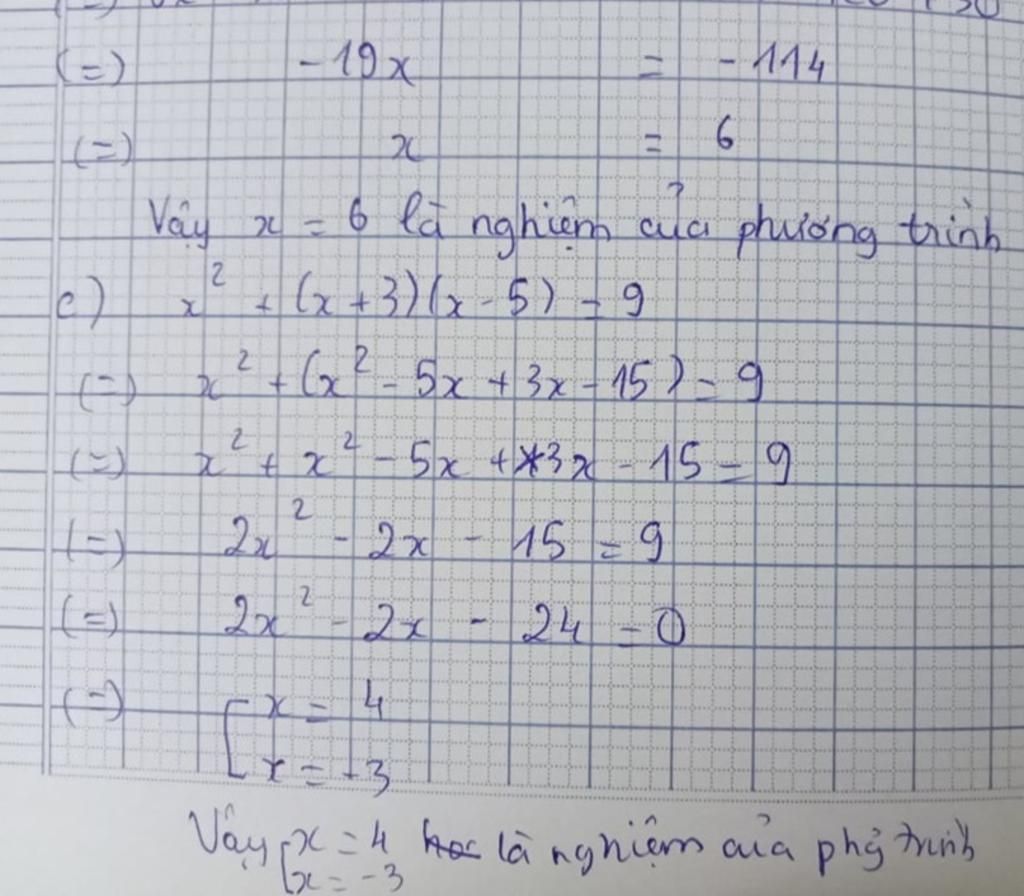 (=) -19x = -114
(=) x = 6
Vậy x = 6 là nghiệm của phương trình
c) x² + (x+3)(x-5) = 9
(=) x² + (x² - 5x + 3x - 15) = 9
(=) x² + x² - 5x + 3x - 15 = 9
(=) 2x² - 2x - 15 = 9
(=) 2x² - 2x - 24 = 0
(=) [ x = 4
x = -3
Vậy [ x = 4 là nghiệm của phg trình
x = -3